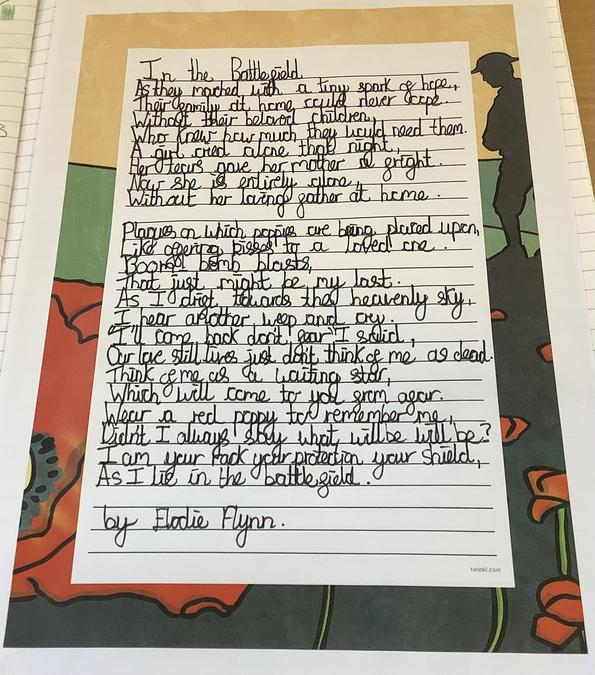 In the Battlefield
As they marched with a tiny spark of hope,
Their family at home, could never cope.
Without their beloved children,
Who knew how much they would need them.
A girl cried alone that night,
Her tears gave her mother a fright.
Now she is entirely alone,
Without her loving father at home.
Plaques on which poppies are being placed upon,
Like offering kisses to a loved one.
Boom of bomb blasts,
That just might be my last.
As I drift towards the heavenly sky,
I hear another weep and cry.
"I'll come back don't fear" I said,
Our love still lives just don't think of me as dead.
Think of me as a waiting star,
Which will come to you from afar.
Wear a red poppy to remember me,
Didn't I always say what will be will be?
I am your rock your protection your shield,
As I lie in the battlefield.
by Elodie Flynn.
twinkl.com